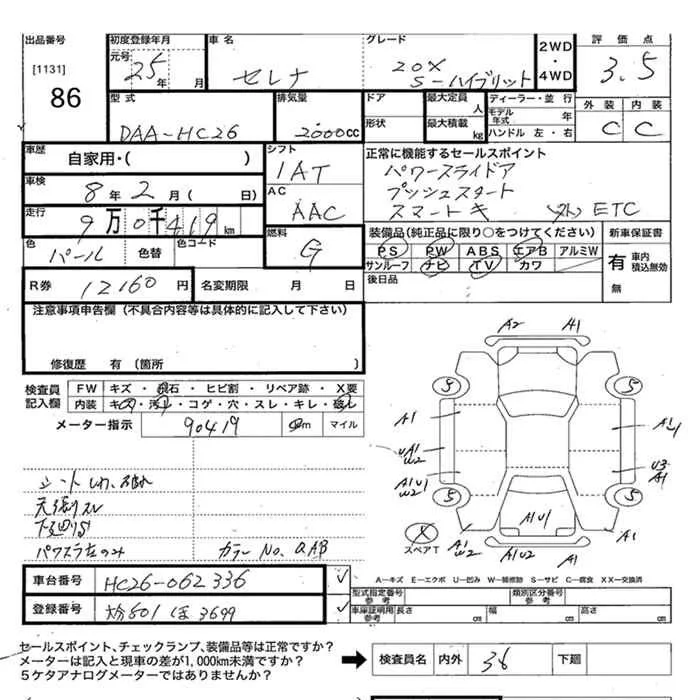 出品番号
[1131]
86
初度登録年月
元号 25年 月
車名
セレナ
グレード
20X
S-ハイブリット
2WD
・
4WD
評価点
3.5
外装 内装
C C
型式
DAA-HC26
排気量
2000cc
ドア
形状
最大定員 人
最大積載 kg
ディーラー・並行
モデル年式 年
ハンドル 左・右
車歴
自家用・( )
シフト
IAT
正常に機能するセールスポイント
パワースライドア
プッシュスタート
スマートキー
ETC
車検
8年 2月( 日)
AC
AAC
走行
9万0千419km
燃料
G
色
パール
色替
色コード
装備品(純正品に限り○をつけてください)
PS PW ABS エアB アルミW
サンルーフ ナビ TV カワ
新車保証書
有
無
車内積込無効
後日品
R券
12160円
名変期限 月 日
注意事項申告欄(不具合内容等は具体的に記入して下さい)
修復歴 有(箇所 )
検査員記入欄
FW キズ・飛石・ヒビ割・リペア跡・X要
内装 キズ・汚レ・コゲ・穴・スレ・キレ・破レ
メーター指示
90419
km マイル
天張りスレ
下廻りS
パワスラ左のみ
カラーNo. QAB
A2 A1
5 5
A1
UA1
W2
A1U1
W2
U3
A1
5 5
A1U1
A1
W2
A1U2
A1
A1
X
スペアT
A-キズ E-エクボ U-凹み W-補修跡 S-サビ C-腐食 XX-交換済
車台番号
HC26-062336
登録番号
大分501 ほ3699
型式指定番号
参考
類別区分番号
参考
車庫証明用
参考
長さ cm 幅 cm 高さ cm
セールスポイント、チェックランプ、装備品等は正常ですか?
メーターは記入と現車の差が1,000km未満ですか?
5ケタアナログメーターではありませんか?
検査員名 内外 38 下廻